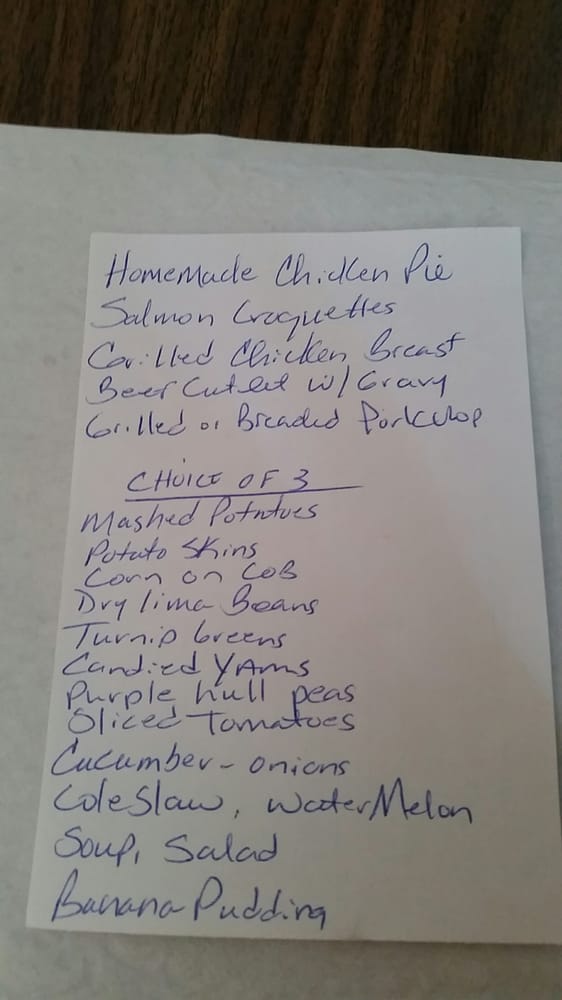 Homemade Chicken Pie
Salmon Croquettes
Grilled Chicken Breast
Beef Cutlet w/ Gravy
Grilled or Breaded Porkchop
CHOICE OF 3
Mashed Potatoes
Potato Skins
Corn on COB
Dry lima Beans
Turnip Greens
Candied YAms
Purple hull peas
Sliced Tomatoes
Cucumber - onions
Cole Slaw, WaterMelon
Soup, Salad
Banana Pudding